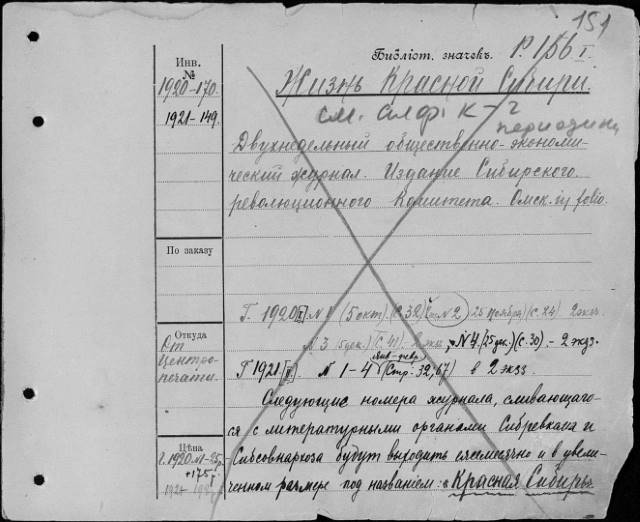 151
Библіот. значекъ. Р. 156 I.
Инв.
№
1920-170.
1921-149.
Жизнь Красной Сибири.
см. алф. К-
периодика
Двухнедельный общественно-экономи-
ческий журнал. Издание Сибирского
революционного Комитета. Омск. in folio.
По заказу
Г. 1920 № 1 (5 окт.) (с. 32) № 2 25 Ноября) (с. 24) 2 экз.
№ 3 (5 дек.) (с. 41) - 2 экз, № 4 (25 дек.) (с. 30). - 2 экз.
Откуда
От
Центро-
печати.
Г 1921 № 1-4 (Стр. 32, 67) в 2 экз.
Следующие номера журнала, сливающаго-
ся с литературными органами Сибревкома и
Сибсовнархоза будут выходить ежемесячно и в увели-
ченном размере под названием: "Красная Сибирь".
Цѣна
г. 1920 № 1-25р
+175р